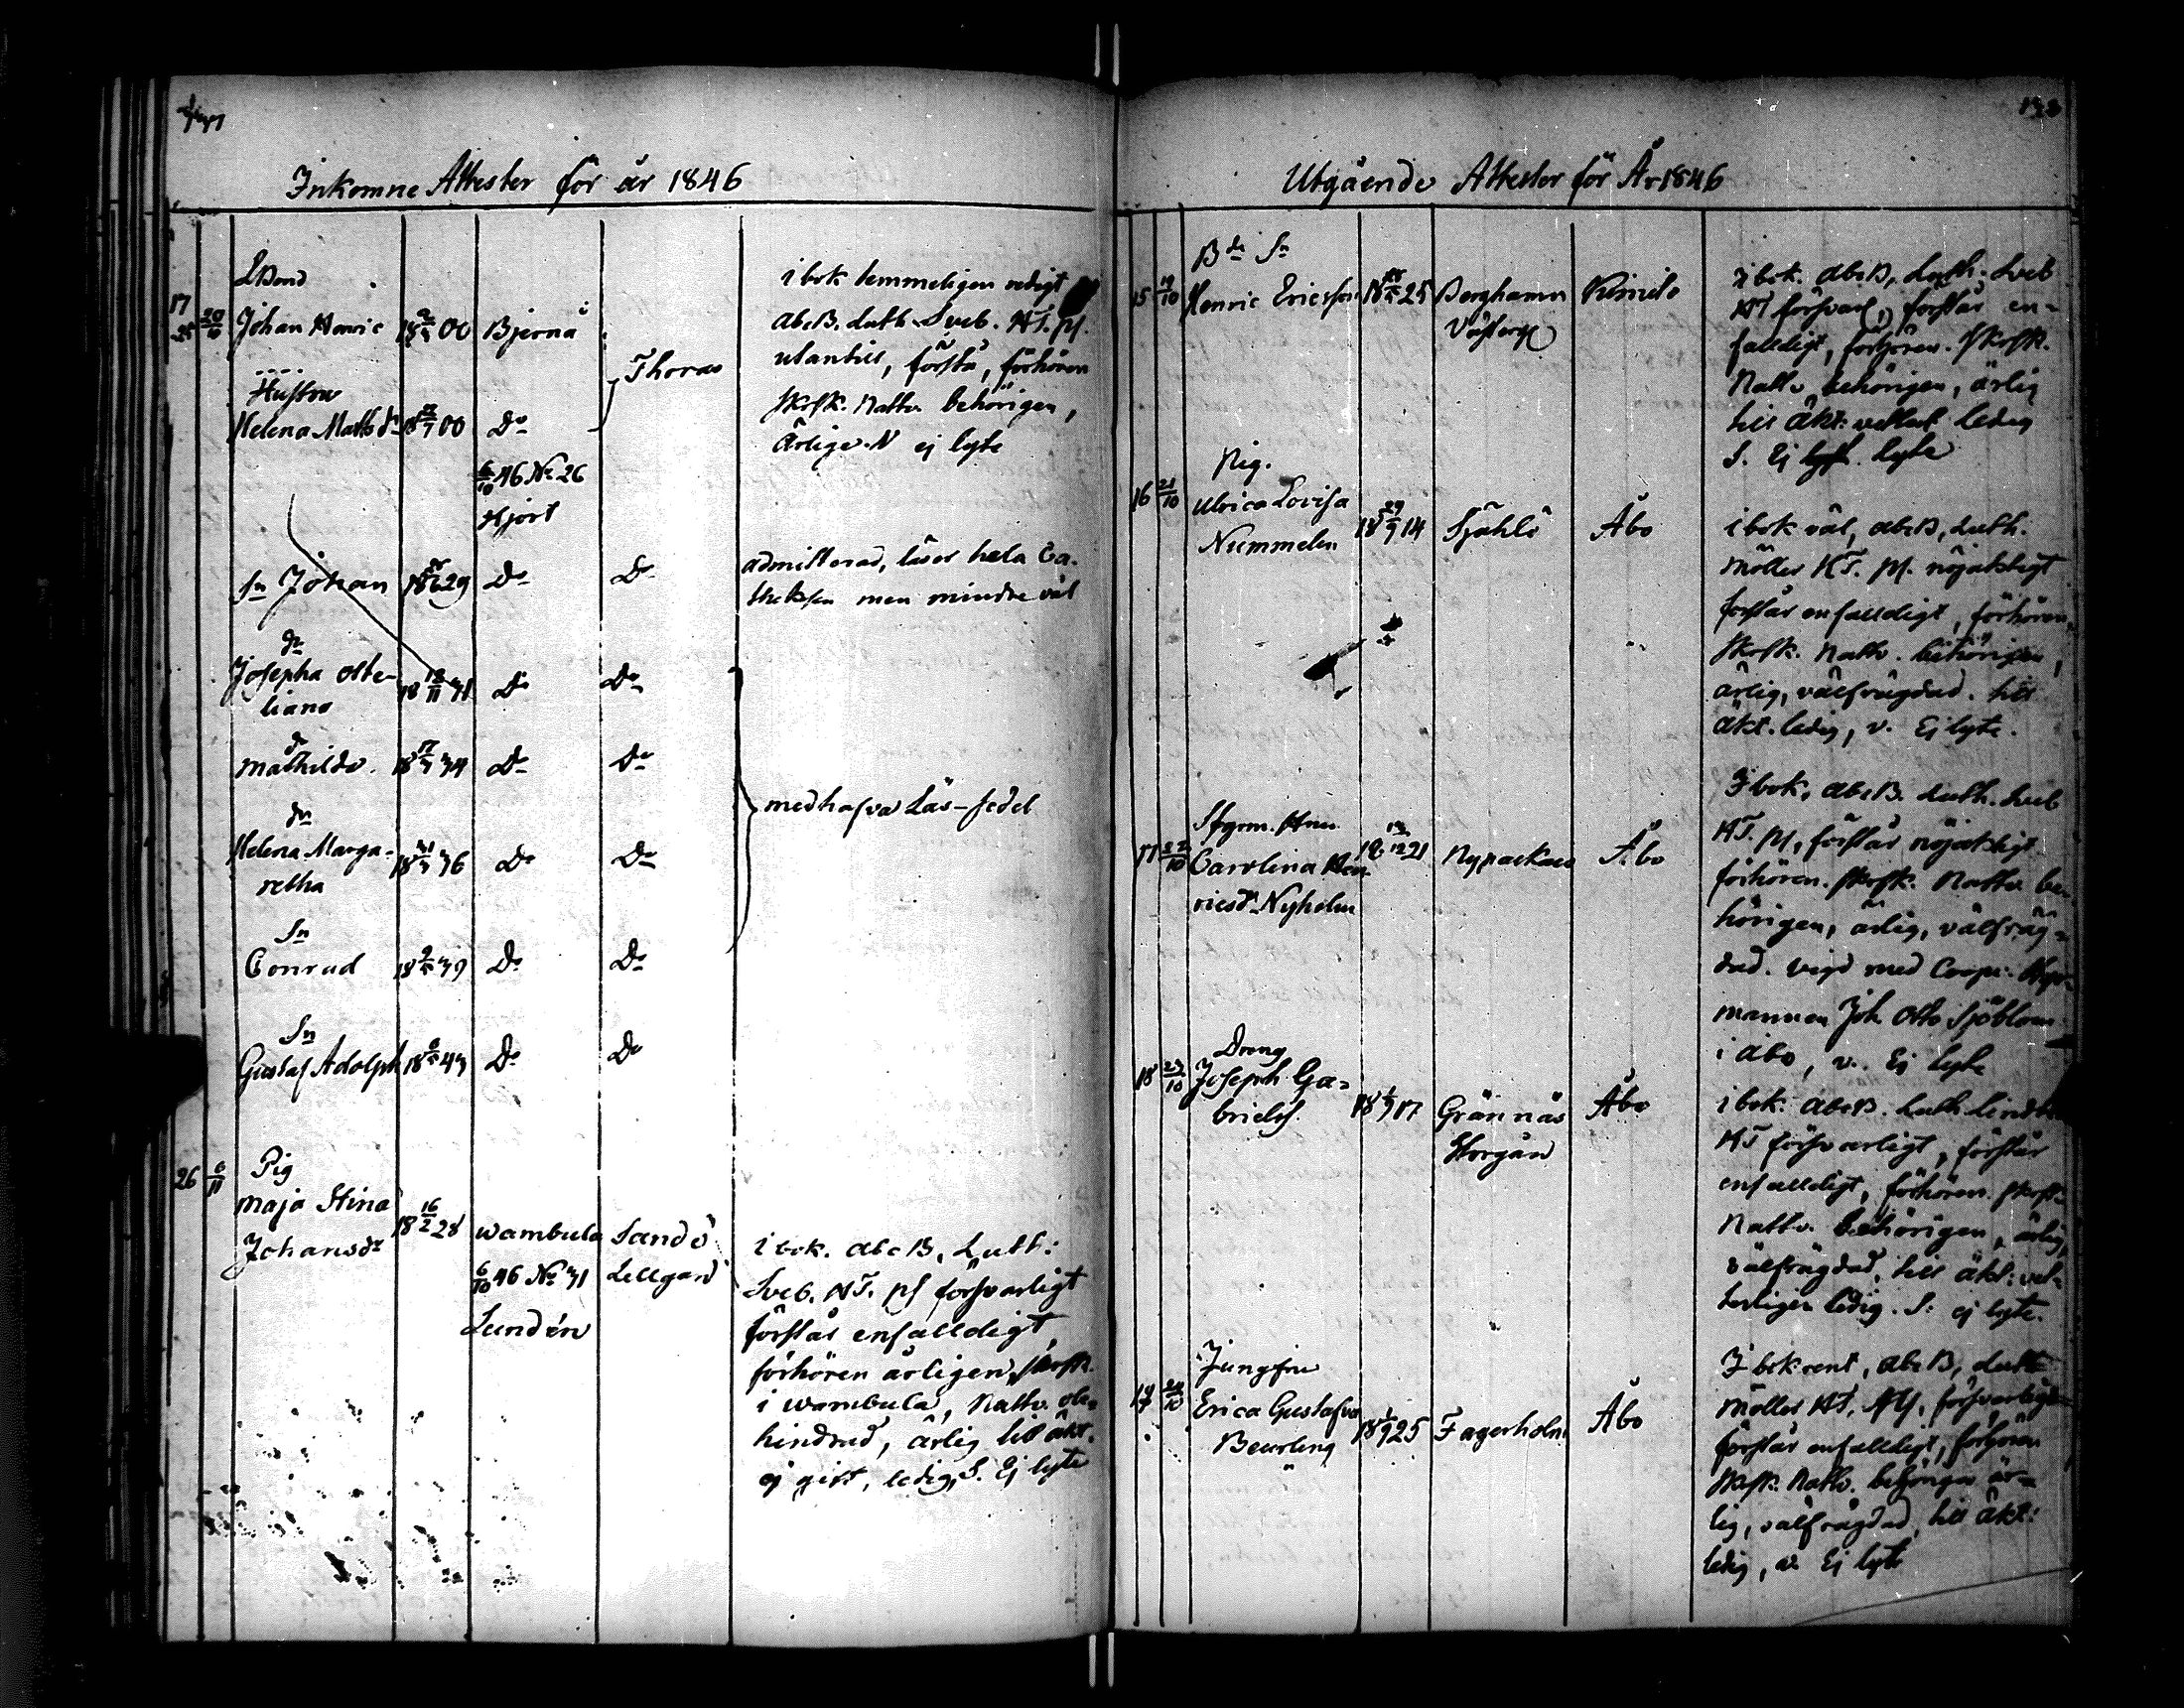 Inkomne Attester för år 1846
LBond
17
25 20/10 Johan Henric 18 00 Bjernå
Thoras
i bok temmeligen redigt
abcB. Luth. Sveb. HT. ps.
utantill, förstå, förhören
skrsk. Nattv. behörigen,
Ärlige. N ej lyte
Hustru
Helena Mattsdr 18 00 Do
6/10 46 No 26
Hjort
Sn Johan 18 29 Do Do
admitterad, läser hela Ca-
theksen men mindre väl
dr
Josepha Otte-
liana 18 13/11 31 Do Do
dr
Mathilda 18 17/3 34 Do Do
medhafva Läs-sedel
dr
Helena Marga-
retha 18 36 Do Do
Sn
Conrad 18 9/5 39 Do Do
Sn
Gustaf Adolph 18 43 Do Do
26 6/11 Pig
Maja Stina
Johansdr 18 16/2 28 Wambula Sandö
6/10 46 No 31 Lillgård
Lundén
i bok. abcB, Luth:
Sveb. HT. ps försvarligt
förstår enfalldigt,
förhören årligen, skrsk.
i Wambula, Nattv. obe-
hindrad, ärlig till äkt.
ej gift, ledig, S. Ej lyte
Utgående Attester för År 1846
Bde Sn
15 19/10 Henric Ericsson 18 25 Berghamn Kimito
I bok. abcB, Luth. Sveb
HT försvarl, förstår en-
falldigt, förhören. skrsk.
Nattv. behörigen, ärlig
till äkt: vetterl. ledig
S. Ej lyte
Pig.
16 21/10 Ulrica Lovisa
Nummelin 18 29/9 14 Sjählö Åbo
i bok väl, abcB, Luth.
Möller HT. ps. nöjaktigt
förstår enfalldigt, förhören,
skrsk. Nattv. behörigen,
ärlig, välfrägdad. till
äkt. ledig, v. Ej lyte.
17 22/10 Carolina Hen-
ricsdr Nyholm 18 13/12 21 Nypackas Åbo
I bok, abcB. Luth. Sveb
HT. ps, förstår nöjaktligt
förhören. skrsk. Nattv. be-
hörigen, ärlig, välfräg-
dad. vigd med
mannen Joh. Otto Sjöblom
i Åbo, v. Ej lyte
Dreng
18 23/10 Joseph Ga-
brielss. 18 17 Grännäs Åbo
Storgård
i bok. abcB. Luth.
HT försvarligt, förstår
enfalldigt, förhören skrsk.
Nattv. behörigen, ärlig,
välfrägdad, till äkt: vet-
terligen ledig. S: ej lyte.
Jungfru
19 24/10 Erica Gustafva
Beurling 18 25 Fagerholm Åbo
I bok rent, abcB, Luth
Möller HT, försvarligt
förstår enfalldigt, förhören
skrsk. Nattv. behörigen är-
lig, välfrägdad, till äkt:
ledig, v. Ej lyte